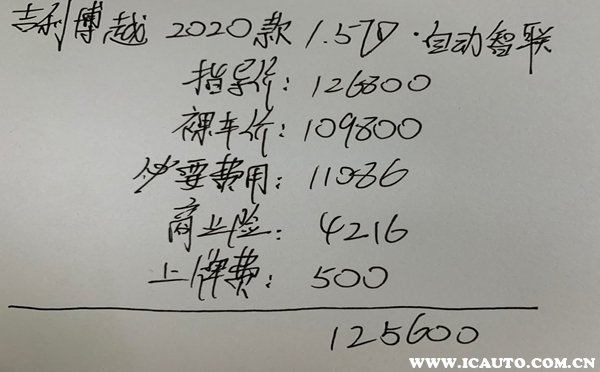 吉利博越 2020款 1.5TD·自动智联
指导价: 126800
裸车价: 109800
必要费用: 11086
商业险: 4216
上牌费: 500
125600
WWW.ICAUTO.COM.CN